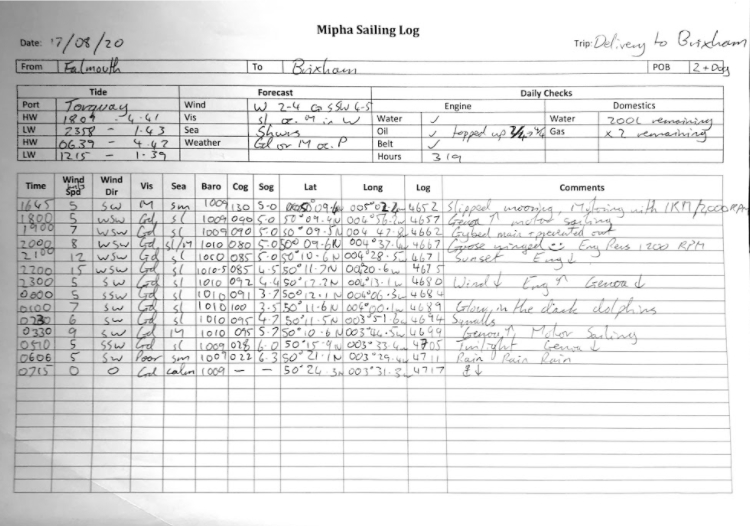 Mipha Sailing Log
Date: 17/08/20 Trip: Delivery to Brixham
From Falmouth To Brixham POB 2 + Dog
Tide Forecast Daily Checks
Port Torquay Wind W 2-4 SSW 4-5 Engine Domestics
HW 1804 - 4.41 Vis M in W Water ✓ Water 200L remaining
LW 2358 - 1.43 Sea Oil ✓ topped up Gas x 2 remaining
HW 0639 - 4.42 Weather Gd or M oc. P Belt ✓
LW 1215 - 1.39 Hours 319
Time Wind Spd Wind Dir Vis Sea Baro Cog Sog Lat Long Log Comments
1645 5 SW M sm 1009 130 5.0 4652 Slipped mooring, Motoring with
1800 5 WSW Gd sl 1009 090 5.0 50° 09.4N 4657 Genoa ↑ motor sailing
1900 7 WSW Gd sl 1009 090 5.0 50° 09.5N 004 47.8 4662 Gybed main
2000 8 WSW Gd sl/M 1010 080 5.0 50° 09.6N 004° 37.6 4667 Goose winged Eng Revs 1200 RPM
2100 12 WSW Gd sl 085 5.0 50° 10.6N 004° 28.5 4671 Sunset Eng ↓
2200 15 WSW Gd sl 1010.5 085 4.5 50° 11.7N 4675
2300 5 SW Gd sl 1010 092 4.4 50° 12.2N 004° 13.1 4680 Wind ↓ Eng ↑ Genoa ↓
0000 5 SSW Gd sl 1010 091 3.7 50° 12.1N 004° 06.3 4684
0100 7 SW Gd sl 1010 100 3.5 50° 11.6N 004° 00.1 4689 Glow in the dark dolphins
6 SW Gd sl 1010 095 4.7 50° 11.5N 003° 51.6 4694 Squalls
0330 9 SW Gd M 1010 095 5.7 50° 10.6N 003° 44.5 4699 Genoa ↑ Motor Sailing
0510 5 SSW Gd sl 1009 028 6.0 50° 15.9N 003° 33.4 4705 Twilight Genoa ↓
0606 5 SW Poor sm 1009 022 6.3 50° 21.1N 003° 29.4 4711 Rain Rain Rain
0715 0 0 Gd calm 1009 – – 50° 24.3N 003° 31.3 4717 ⚓↓